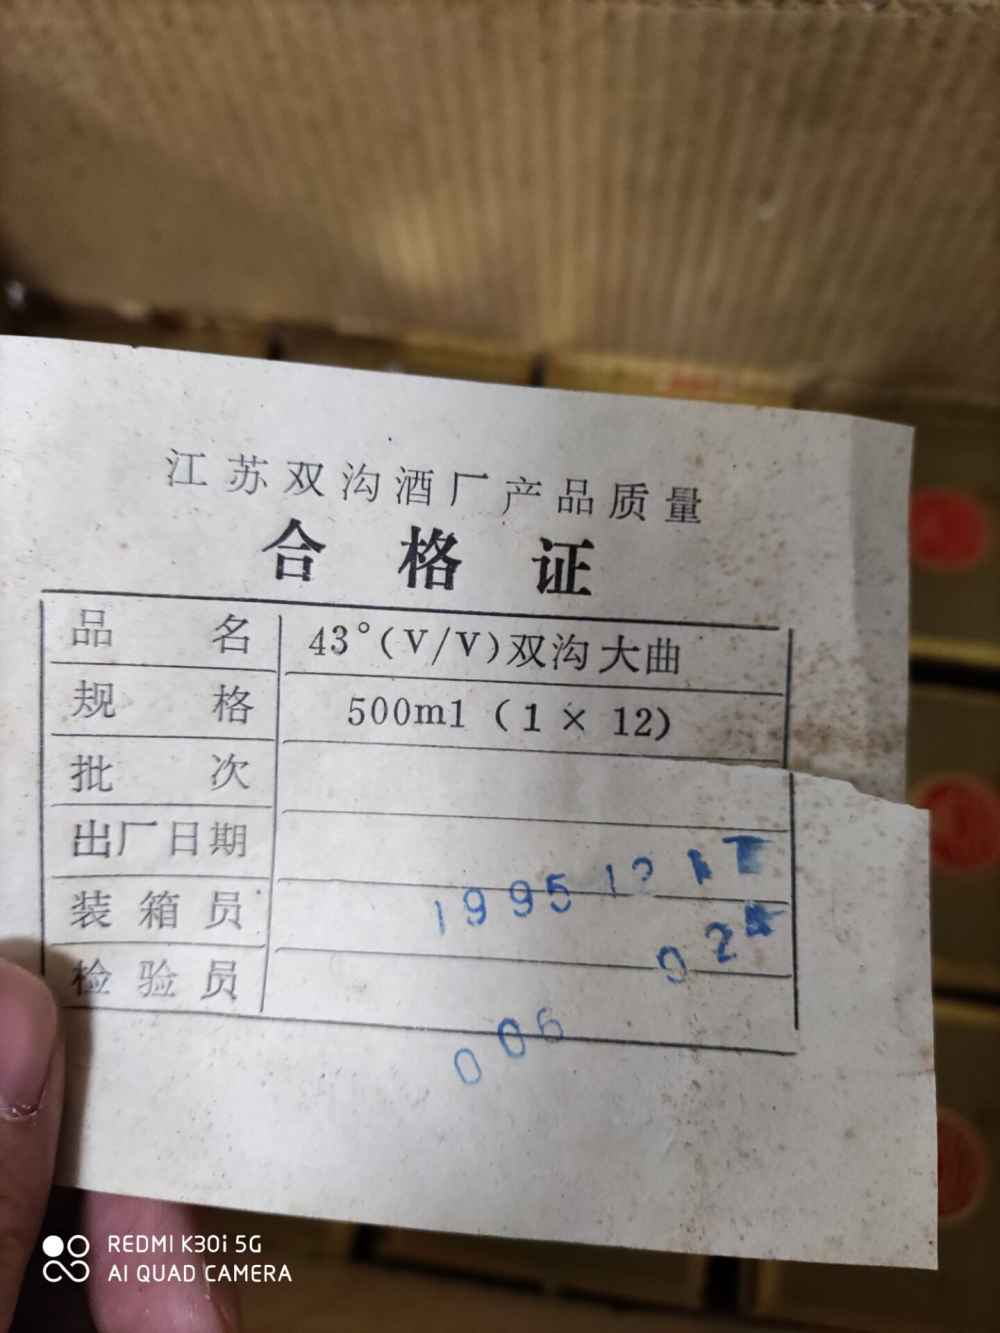 江苏双沟酒厂产品质量
合格证
品名 43°(V/V)双沟大曲
规格 500ml (1×12)
批次
出厂日期
1995 12
装箱员
02
检验员
006
REDMI K30i 5G
AI QUAD CAMERA